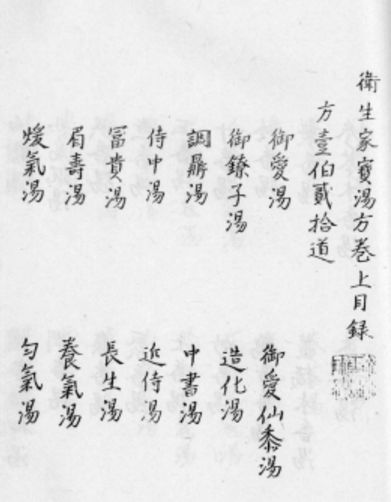 衛生家寶湯方卷上目録
方壹伯貳拾道
御愛湯
御愛仙黍湯
御鐐子湯
造化湯
調鼎湯
中書湯
侍中湯
近侍湯
冨貴湯
長生湯
眉壽湯
養氣湯
煖氣湯
勻氣湯